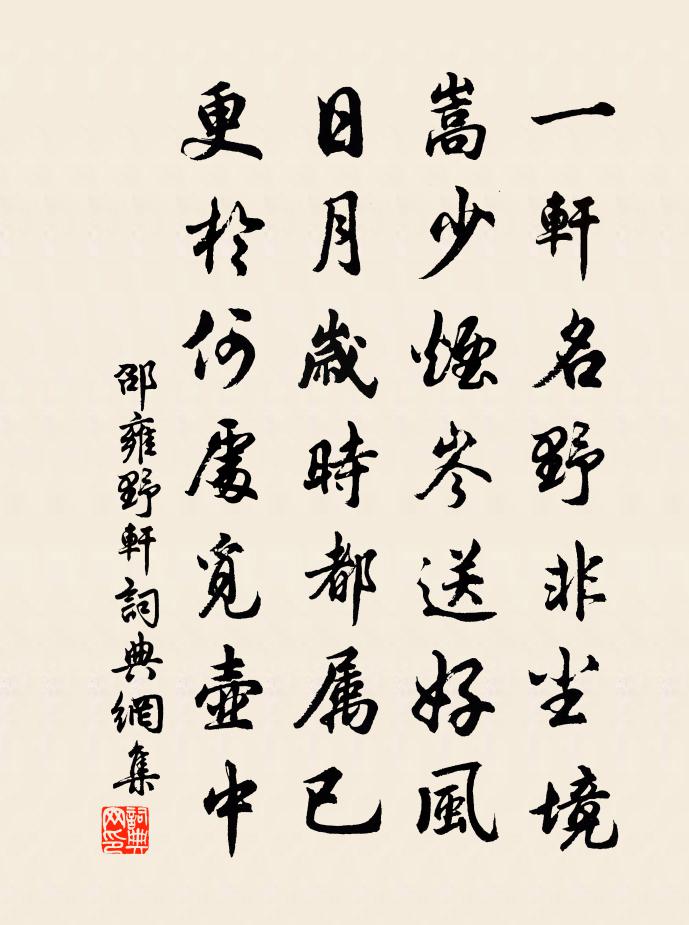 一軒名野非尘境
嵩少煙岑送好風
日月歲時都属已
更於何處覓壺中
邵雍野軒詞典網集
詞典网印